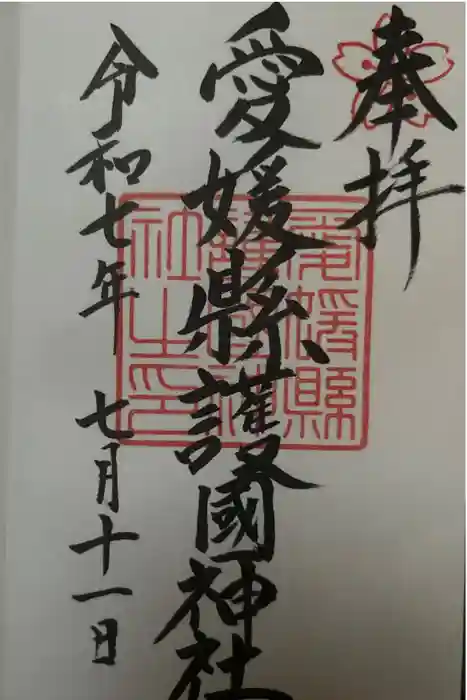 奉拝
愛媛縣護國神社
令和七年 七月十一日
愛媛縣
護國神
社之印